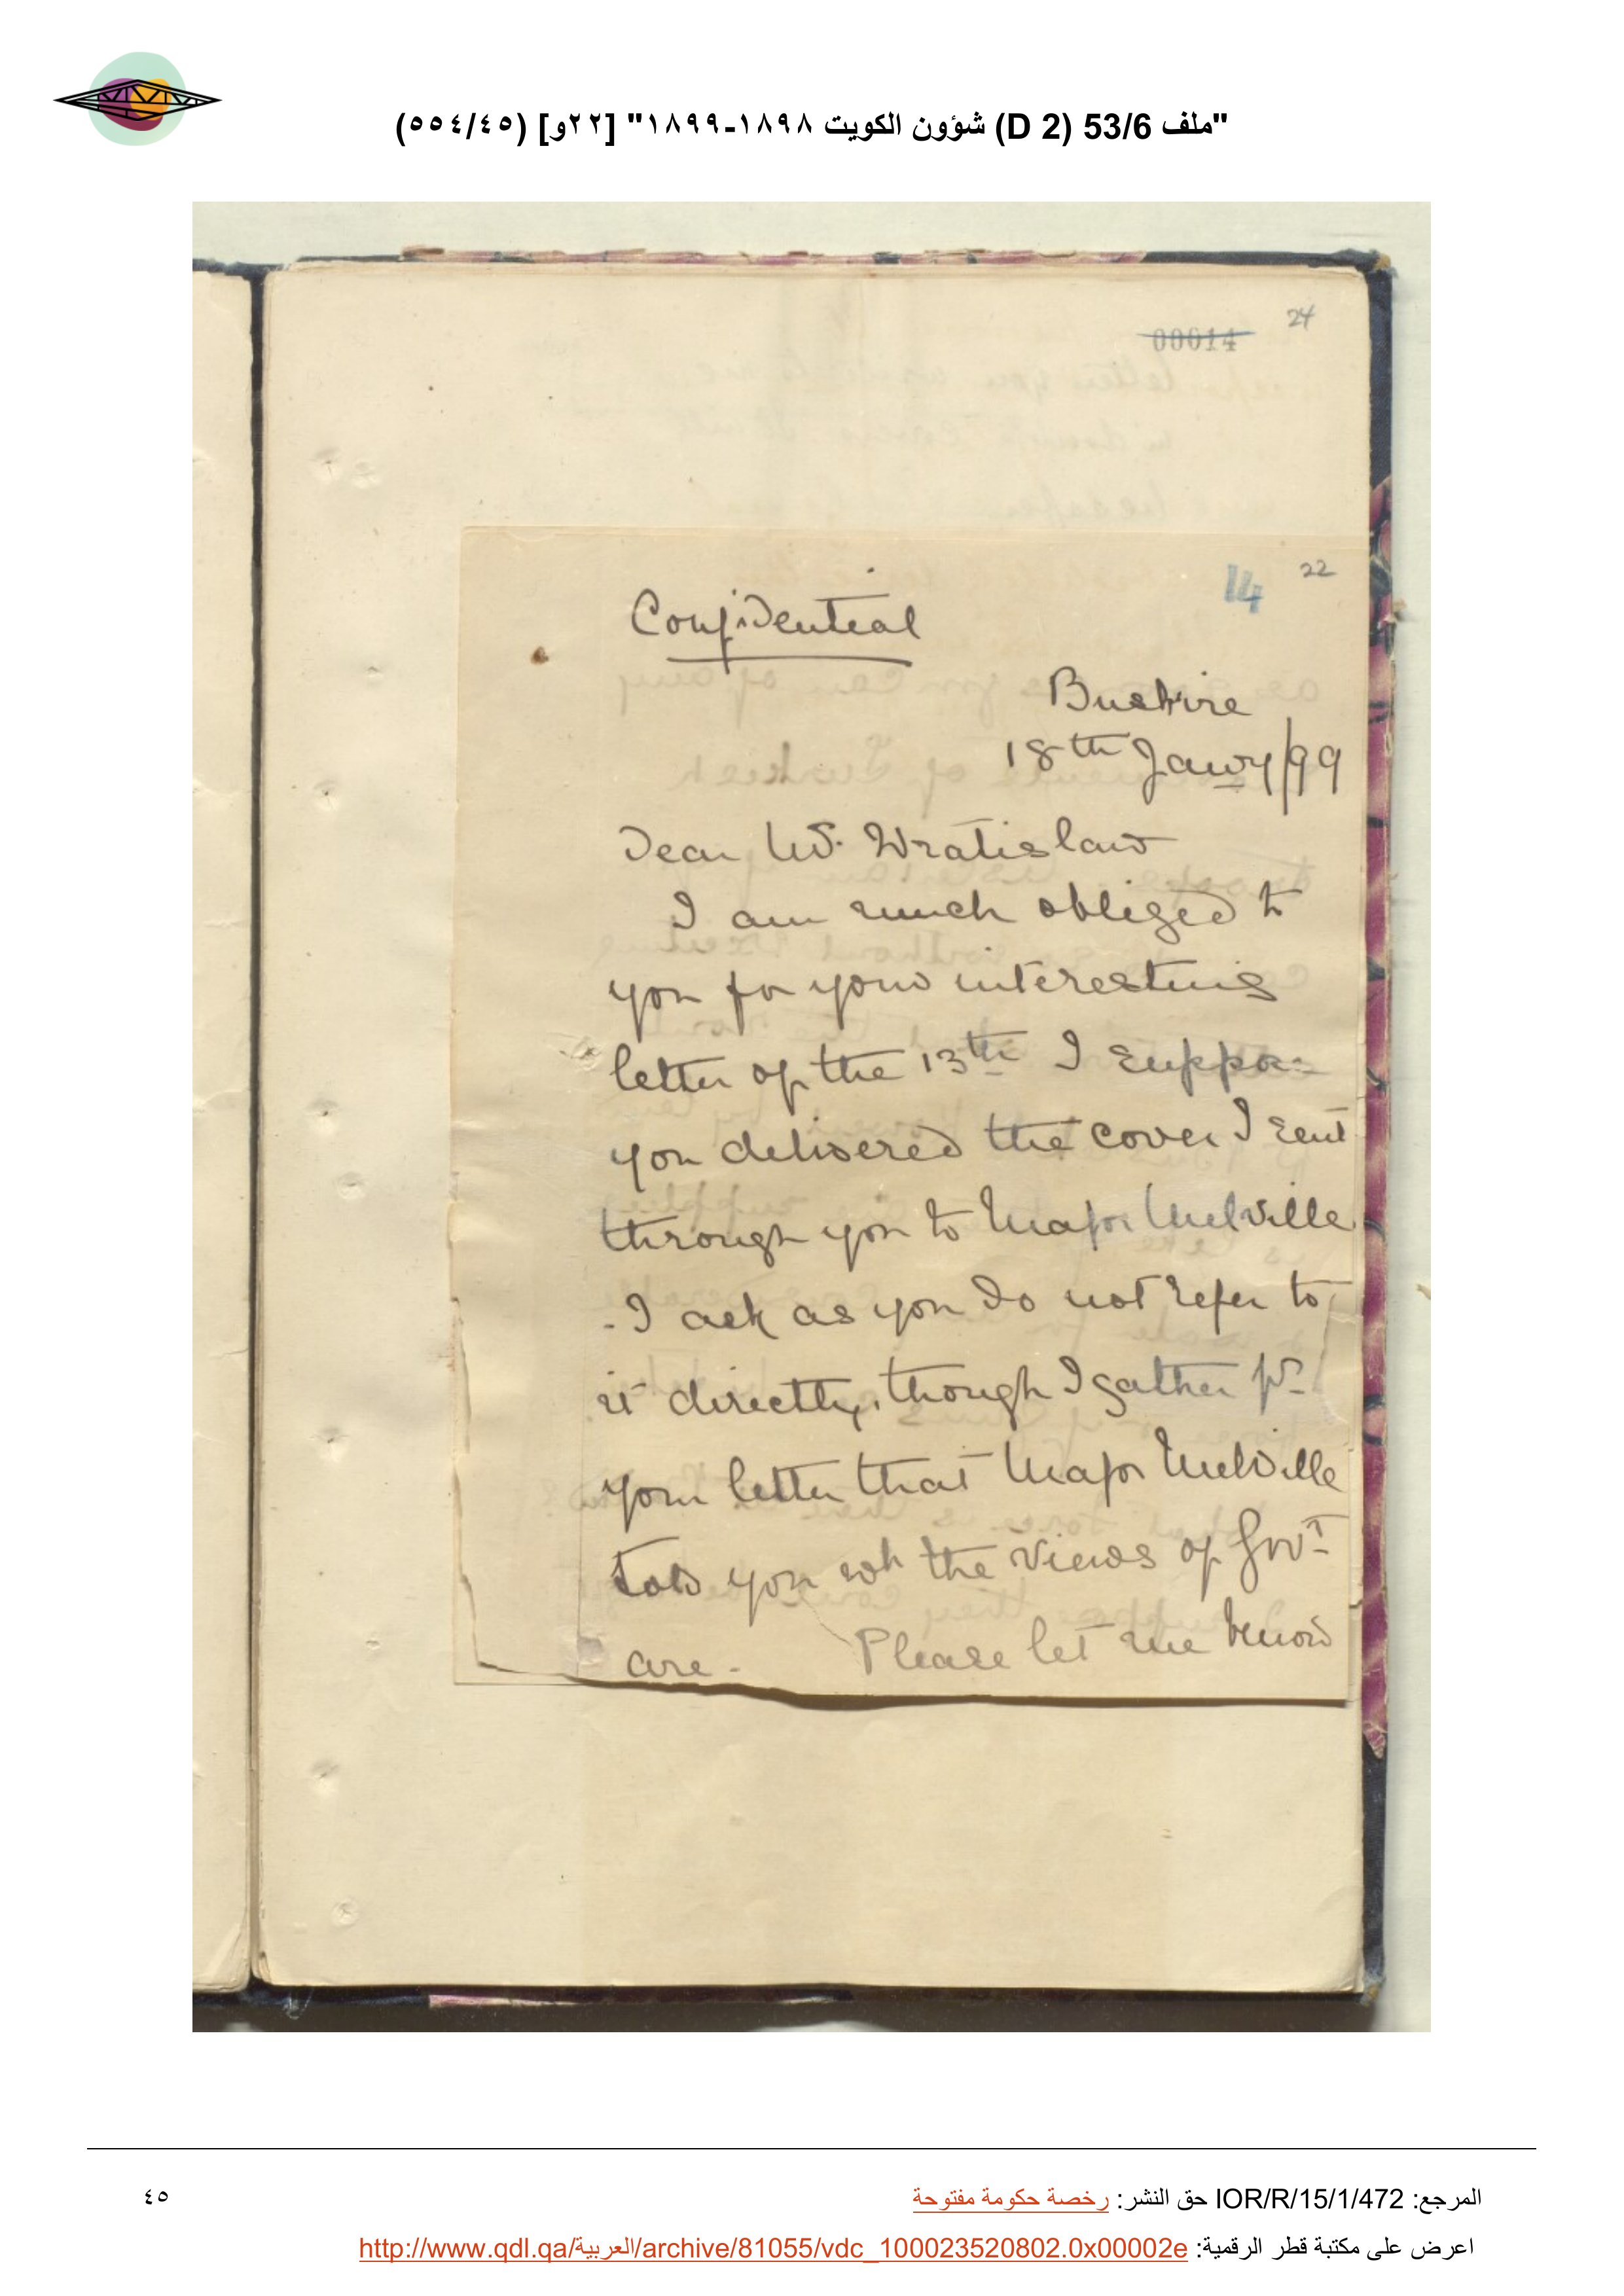 "ملف 53/6 (D 2) شؤون الكويت ١٨٩٨-١٨٩٩" [٢٢و] (٥٥٤/٤٥)
24
00014
14 22
Confidential
Bushire
18th Jany/99
Dear Mr. Wratislaw
I am much obliged to
you for your interesting
letter of the 13th I suppose
you delivered the cover I sent
through you to Major Melville
- I ask as you do not refer to
it directly, though I gather fr.
your letter that Major Melville
told you wh the views of Govt
are - Please let me know
المرجع: IOR/R/15/1/472 حق النشر: رخصة حكومة مفتوحة
٤٥
اعرض على مكتبة قطر الرقمية: http://www.qdl.qa/العربية/archive/81055/vdc_100023520802.0x00002e